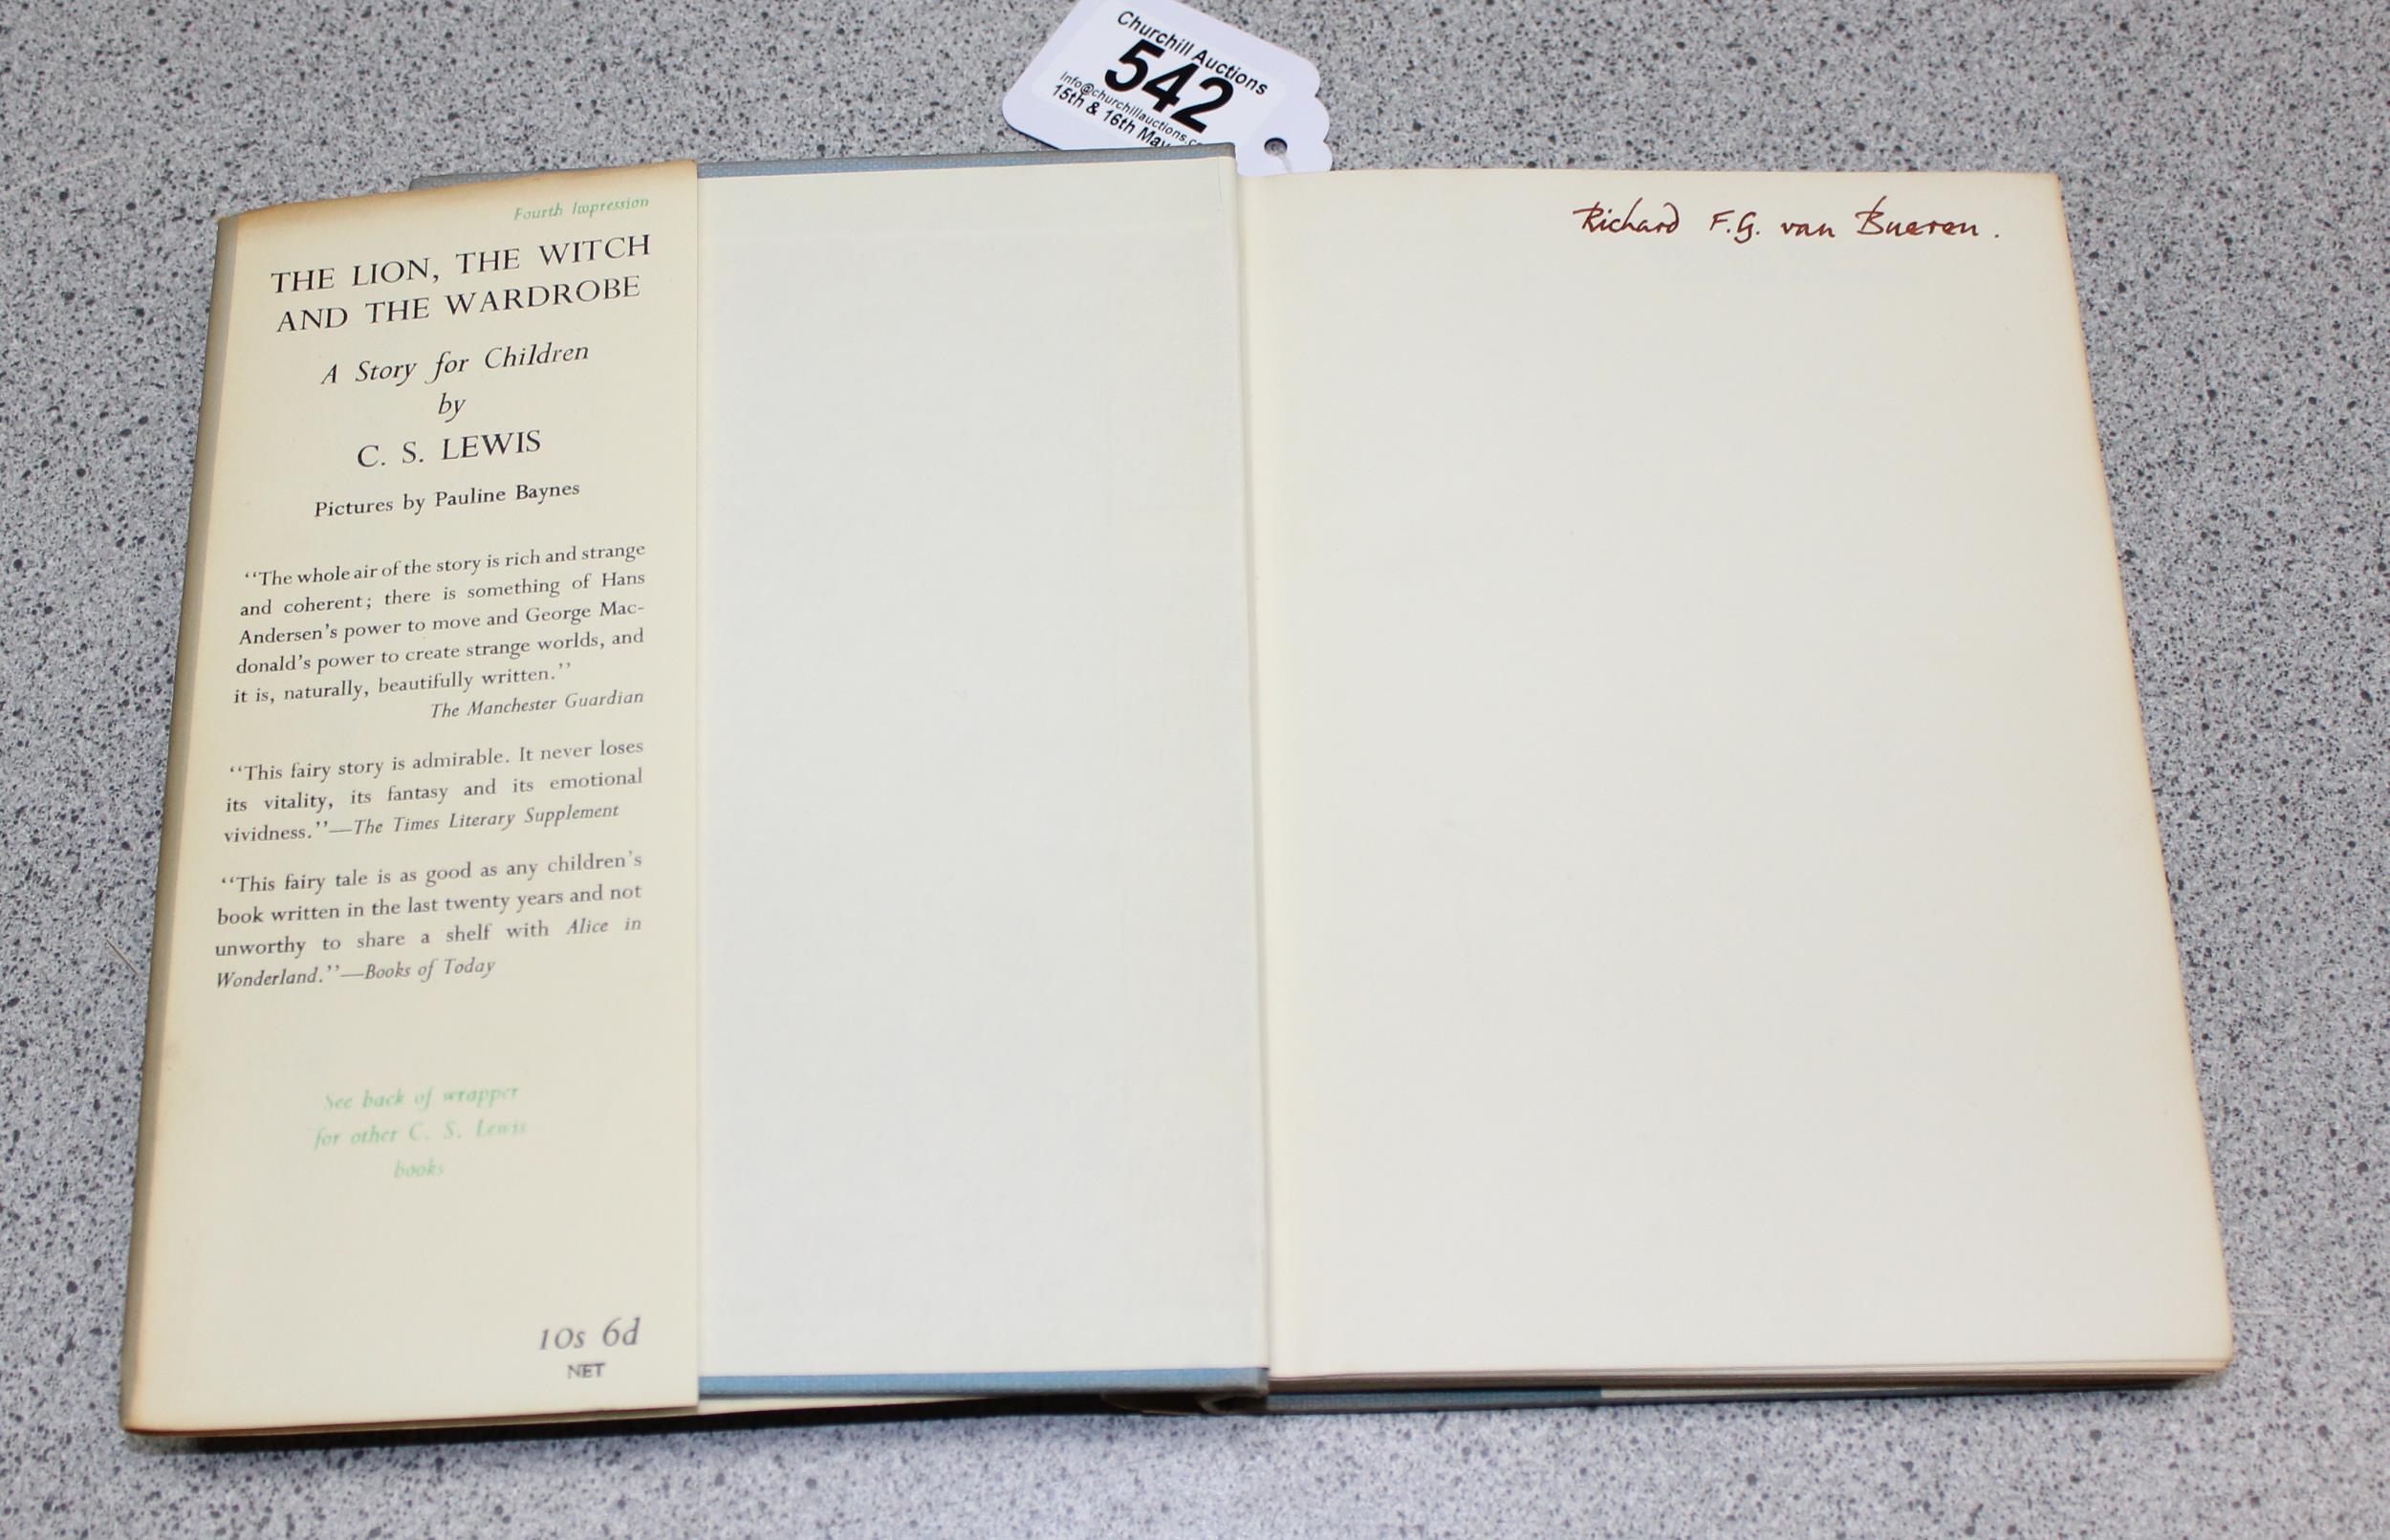 Churchill Auctions
542
15th & 16th May
Fourth Impression
THE LION, THE WITCH
AND THE WARDROBE
A Story for Children
by
C. S. LEWIS
Pictures by Pauline Baynes
‘‘The whole air of the story is rich and strange
and coherent; there is something of Hans
Andersen’s power to move and George Mac-
donald’s power to create strange worlds, and
it is, naturally, beautifully written.’’
The Manchester Guardian
‘‘This fairy story is admirable. It never loses
its vitality, its fantasy and its emotional
vividness.’’—The Times Literary Supplement
‘‘This fairy tale is as good as any children’s
book written in the last twenty years and not
unworthy to share a shelf with Alice in
Wonderland.’’—Books of Today
See back of wrapper
for other C. S. Lewis
books
10s 6d
NET
Richard F.G. van Bueren.